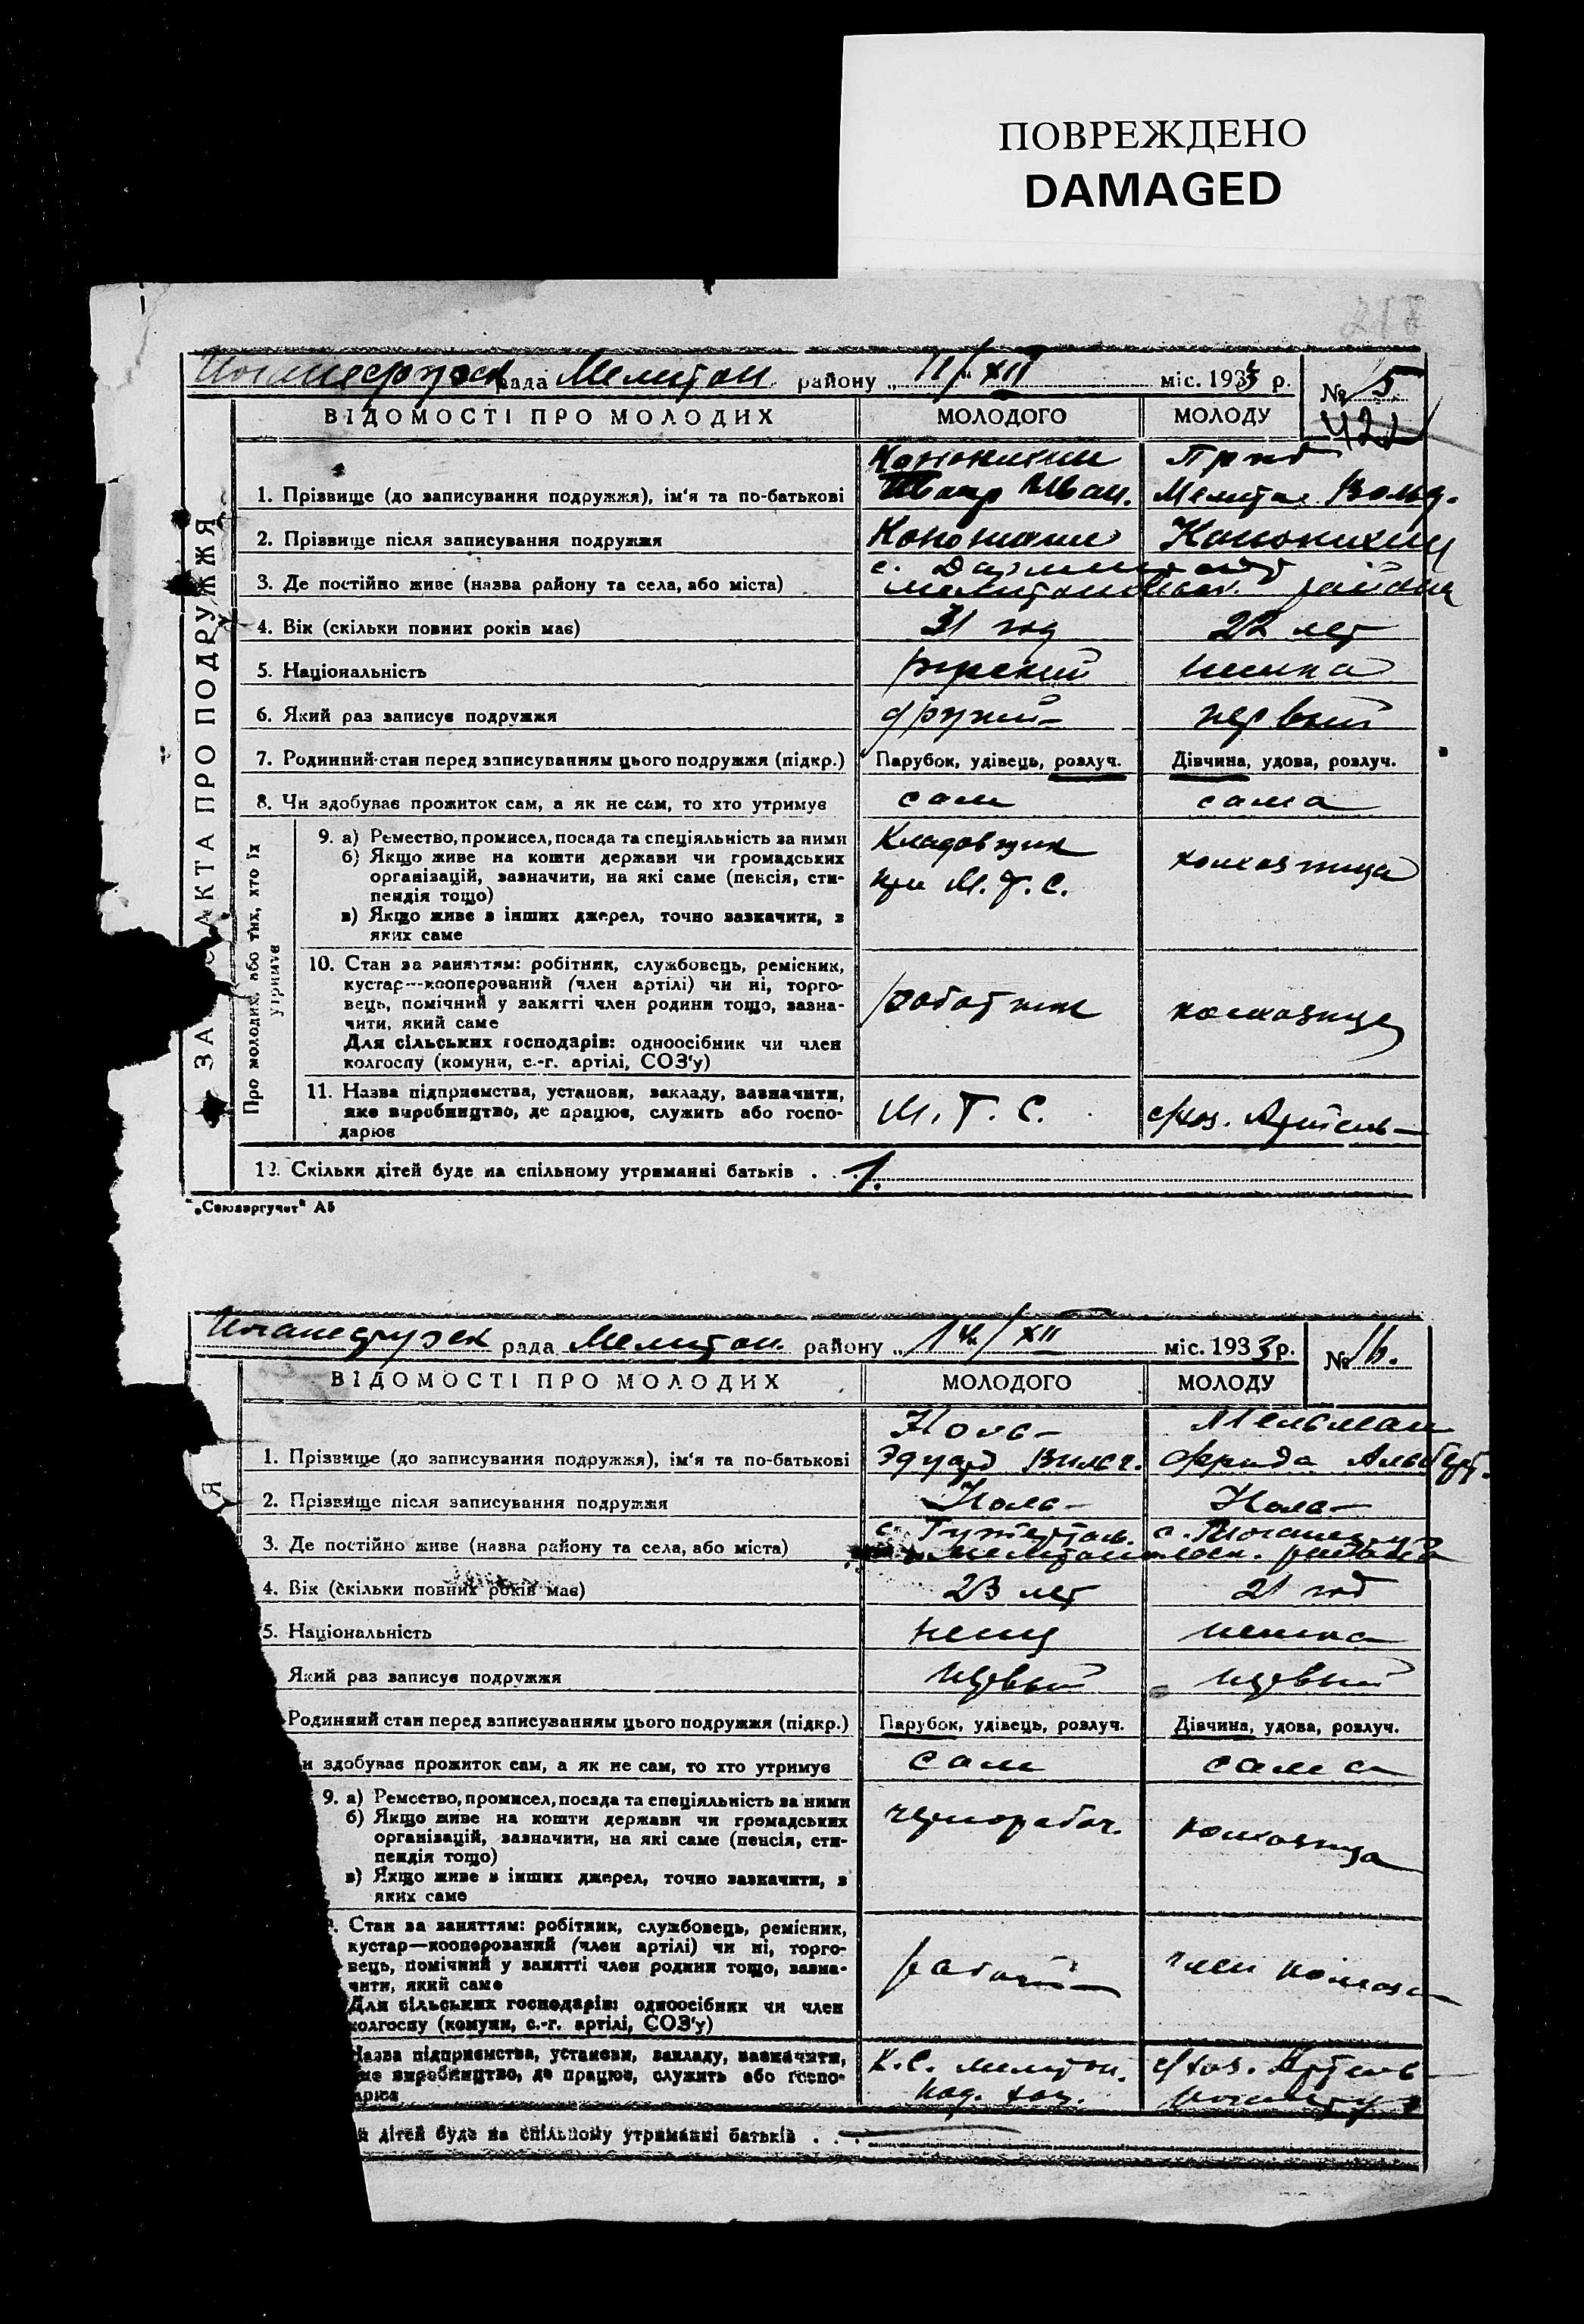 ПОВРЕЖДЕНО
DAMAGED
218
рада Мелитоп. району „11/" XII міс. 1933 р. № 15
422
ВІДОМОСТІ ПРО МОЛОДИХ МОЛОДОГО МОЛОДУ
ЗА АКТА ПРО ПОДРУЖЖЯ
1. Прізвище (до записування подружжя), ім'я та по-батькові
2. Прізвище після записування подружжя
3. Де постійно живе (назва району та села, або міста) с. района
4. Вік (скільки повних років має) 31 год 22 лет
5. Національність русский немка
6. Який раз записує подружжя другий первый
7. Родинний стан перед записуванням цього подружжя (підкр.) Парубок, удівець, розлуч. Дівчина, удова, розлуч.
8. Чи здобуває прожиток сам, а як не сам, то хто утримує сам сама
Про молодих, або тих, хто їх утримує
9. а) Ремество, промисел, посада та спеціяльність за ними Кладовщик колхозница
б) Якщо живе на кошти держави чи громадських при М.Т.С.
організацій, зазначити, на які саме (пенсія, сти-
пендія тощо)
в) Якщо живе з інших джерел, точно зазначити, з
яких саме
10. Стан за заняттям: робітник, службовець, ремісник,
кустар—кооперований (член артілі) чи ні, торго-
вець, помічний у занятті член родини тощо, зазна- работник колхозница
чити, який саме
Для сільських господарів: одноосібник чи член
колгоспу (комуни, с.-г. артілі, СОЗ'у)
11. Назва підприємства, установи, закладу, зазначити,
яке виробництво, де працює, служить або госпо- М.Т.С. с/хоз. Артель
дарює
12. Скільки дітей буде на спільному утриманні батьків . . 1.
„Союзоргучет" А5
рада Мелитоп. району „14/ XII міс. 1933 р. № 16.
ВІДОМОСТІ ПРО МОЛОДИХ МОЛОДОГО МОЛОДУ
Я
1. Прізвище (до записування подружжя), ім'я та по-батькові Эдуард Фрида Альберт.
2. Прізвище після записування подружжя
3. Де постійно живе (назва району та села, або міста)
4. Вік (скільки повних років має) 23 лет 21 год
5. Національність немец немка
Який раз записує подружжя первый первый
Родинний стан перед записуванням цього подружжя (підкр.) Парубок, удівець, розлуч. Дівчина, удова, розлуч.
и здобуває прожиток сам, а як не сам, то хто утримує сам сама
9. а) Ремество, промисел, посада та спеціяльність за ними чернорабоч. колхозница
б) Якщо живе на кошти держави чи громадських
організацій, зазначити, на які саме (пенсія, сти-
пендія тощо)
в) Якщо живе з інших джерел, точно зазначити, з
яких саме
Стан за заняттям: робітник, службовець, ремісник,
кустар—кооперований (член артілі) чи ні, торго-
вець, помічний у занятті член родини тощо, зазна- рабочий член колхоза
чити, який саме
Для сільських господарів: одноосібник чи член
колгоспу (комуни, с.-г. артілі, СОЗ'у)
Назва підприємства, установи, закладу, зазначити, К.С. Мелитоп. с/хоз. Артель
ке виробництво, де працює, служить або госпо-
арює
й дітей буде на спільному утриманні батьків . . —